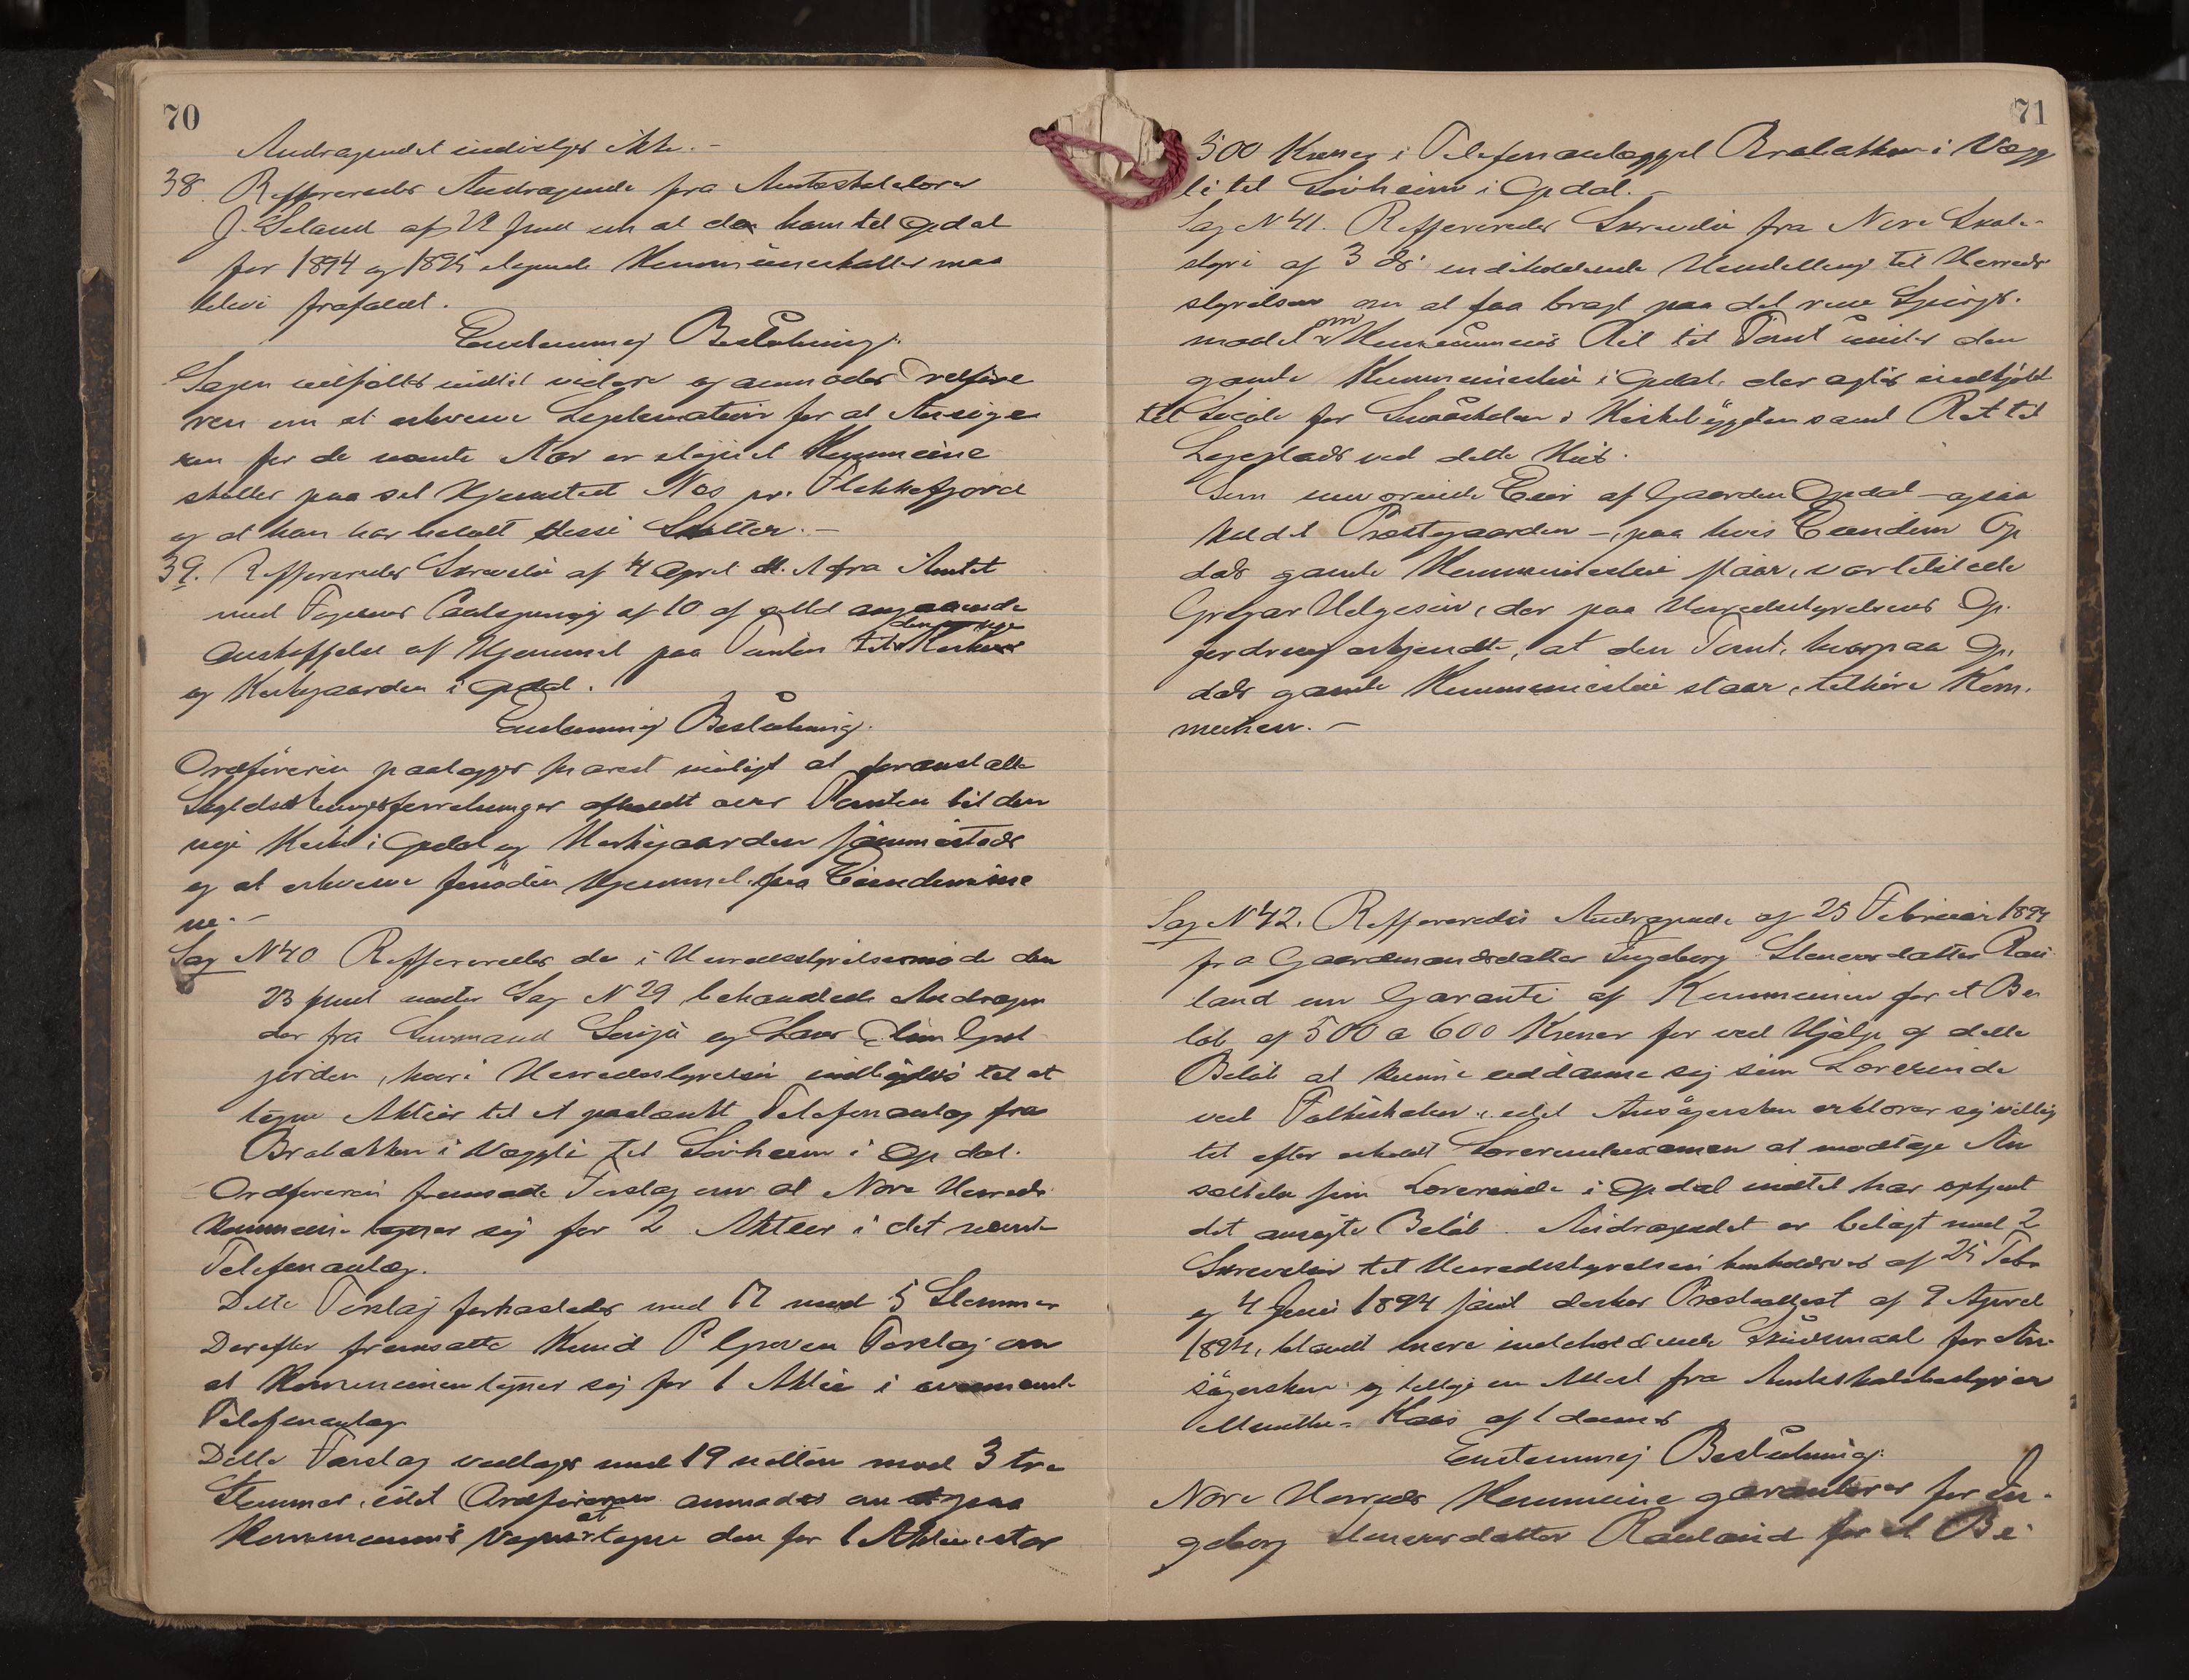 70
Andragendet indvilges ikke. -
38. Reffereredes Andragende fra Amtsskolelærer
J. Seland af 22 om at de ham i Opdal
for 1894 og 1895 ilignede Kommuneskatter maa
blive frafaldt.
Enstemmig Beslutning.
Sagen indtil videre og anmodes Ordføre
ren om at erhverve Legitimation for at Ansøge
ren for de nævnte Aar er ilignet Kommune
skatter paa sit Hjemsted Næs pr. Flekkefjord
og at han har betalt disse Skatter. -
39. Reffereredes Skrivelse af 4 April d. A fra Amtet
med Fogdens Paategning af 10 af s Md angaaende
Anskaffelse af Hjemmel paa Tomten til den nye Kirke
og Kirkegaarden i Opdal.
Enstemmig Beslutning.
Ordføreren paalægges snarest muligt at foranstalte
Skyldsætningsforretninger afholdt over Tomten til den
nye Kirke i Opdal og Kirkegaarden sammesteds
og at erhverve fornøden Hjemmel paa Eiendomme
ne. -
Sag N 40 Reffereredes de i Herredsstyrelsesmøde den
23 under Sag N 29 behandlede Andragen
der fra Lensmand Serigs og Lars
jorden, hvori Herredsstyrelsen indbydes til at
tegne Aktier til et paatænkt Telefonanlæg fra
Brabakken i Væggli til Søvheim i Opdal.
Ordføreren fremsatte Forslag om at Nore Herreds
Kommune tegner sig for 2 Aktier i det nævnte
Telefonanlæg.
Dette Forslag forkastedes med 17 mod 5 Stemmer
Derefter fremsatte Knud P Groven Forslag om
at Kommunen tegner sig for 1 Aktie i ovennævnte
Telefonanlæg
Dette Forslag vedtoges med 19 nitten mod 3 tre
Stemmer, idet Ordføreren anmodes om paa
Kommunens Vegne at tegne den for 1 Aktie stor
71
500 Kroner i Telefonanlægget Brabakken i Vægg
li til Søvheim i Opdal. -
Sag N 41. Reffereredes Skrivelse fra Nore Skole-
styre af 3 ds indeholdende Henstilling til Herreds
styrelsen om at faa bragt paa det rene Spørgs-
maalet om Kommunens Ret til Tomt under den
gamle Kommunestue i Opdal, der agtes indkjøbt
til Locale for Smaaskolen i Kirkebygden samt Ret til
Legeplads ved dette Hus.
Som nuværende Eier af Gaarden Opdal - ogsaa
kaldet Præstegaarden -, paa hvis Eiendom Op
dals gamle Kommunestue staar, var tilstede
Gregar Helgesen, der paa Herredsstyrelsens Op-
fordring erkjendte, at den Tomt, hvorpaa Op-
dals gamle Kommunestue staar, tilhøre Kom-
munen. -
Sag N 42. Reffereredes Andragende af 25 Februar 1894
fra Gaardmandsdatter Ingeborg Steinersdatter Rau
land om Garanti af Kommunen for et Be
løb af 500 a 600 Kroner for ved Hjælp af dette
Beløb at kunne uddanne sig som Lærerinde
ved Folkeskolen, idet Ansøgersken erklærer sig villig
til efter erholdt Lærerindeexamen at modtage An
sættelse som Lærerinde i Opdal indtil har optjent
det ansøgte Beløb. Andragendet er bilagt med 2
Skrivelser til Herredsstyrelsen henholdsvis af 25 Febr
og 4 Juni 1894 samt desker Præsteattest af 9 April
1894, blandt mere indeholdende Skudsmaal for An-
søgersken og tillige en Attest fra Amtsskolebestyrer
Munthe-Kaas af 1 dennes
Enstemmig Beslutning.
Nore Herreds Kommune garanterer for In-
geborg Steinersdatter Rauland for et Be-